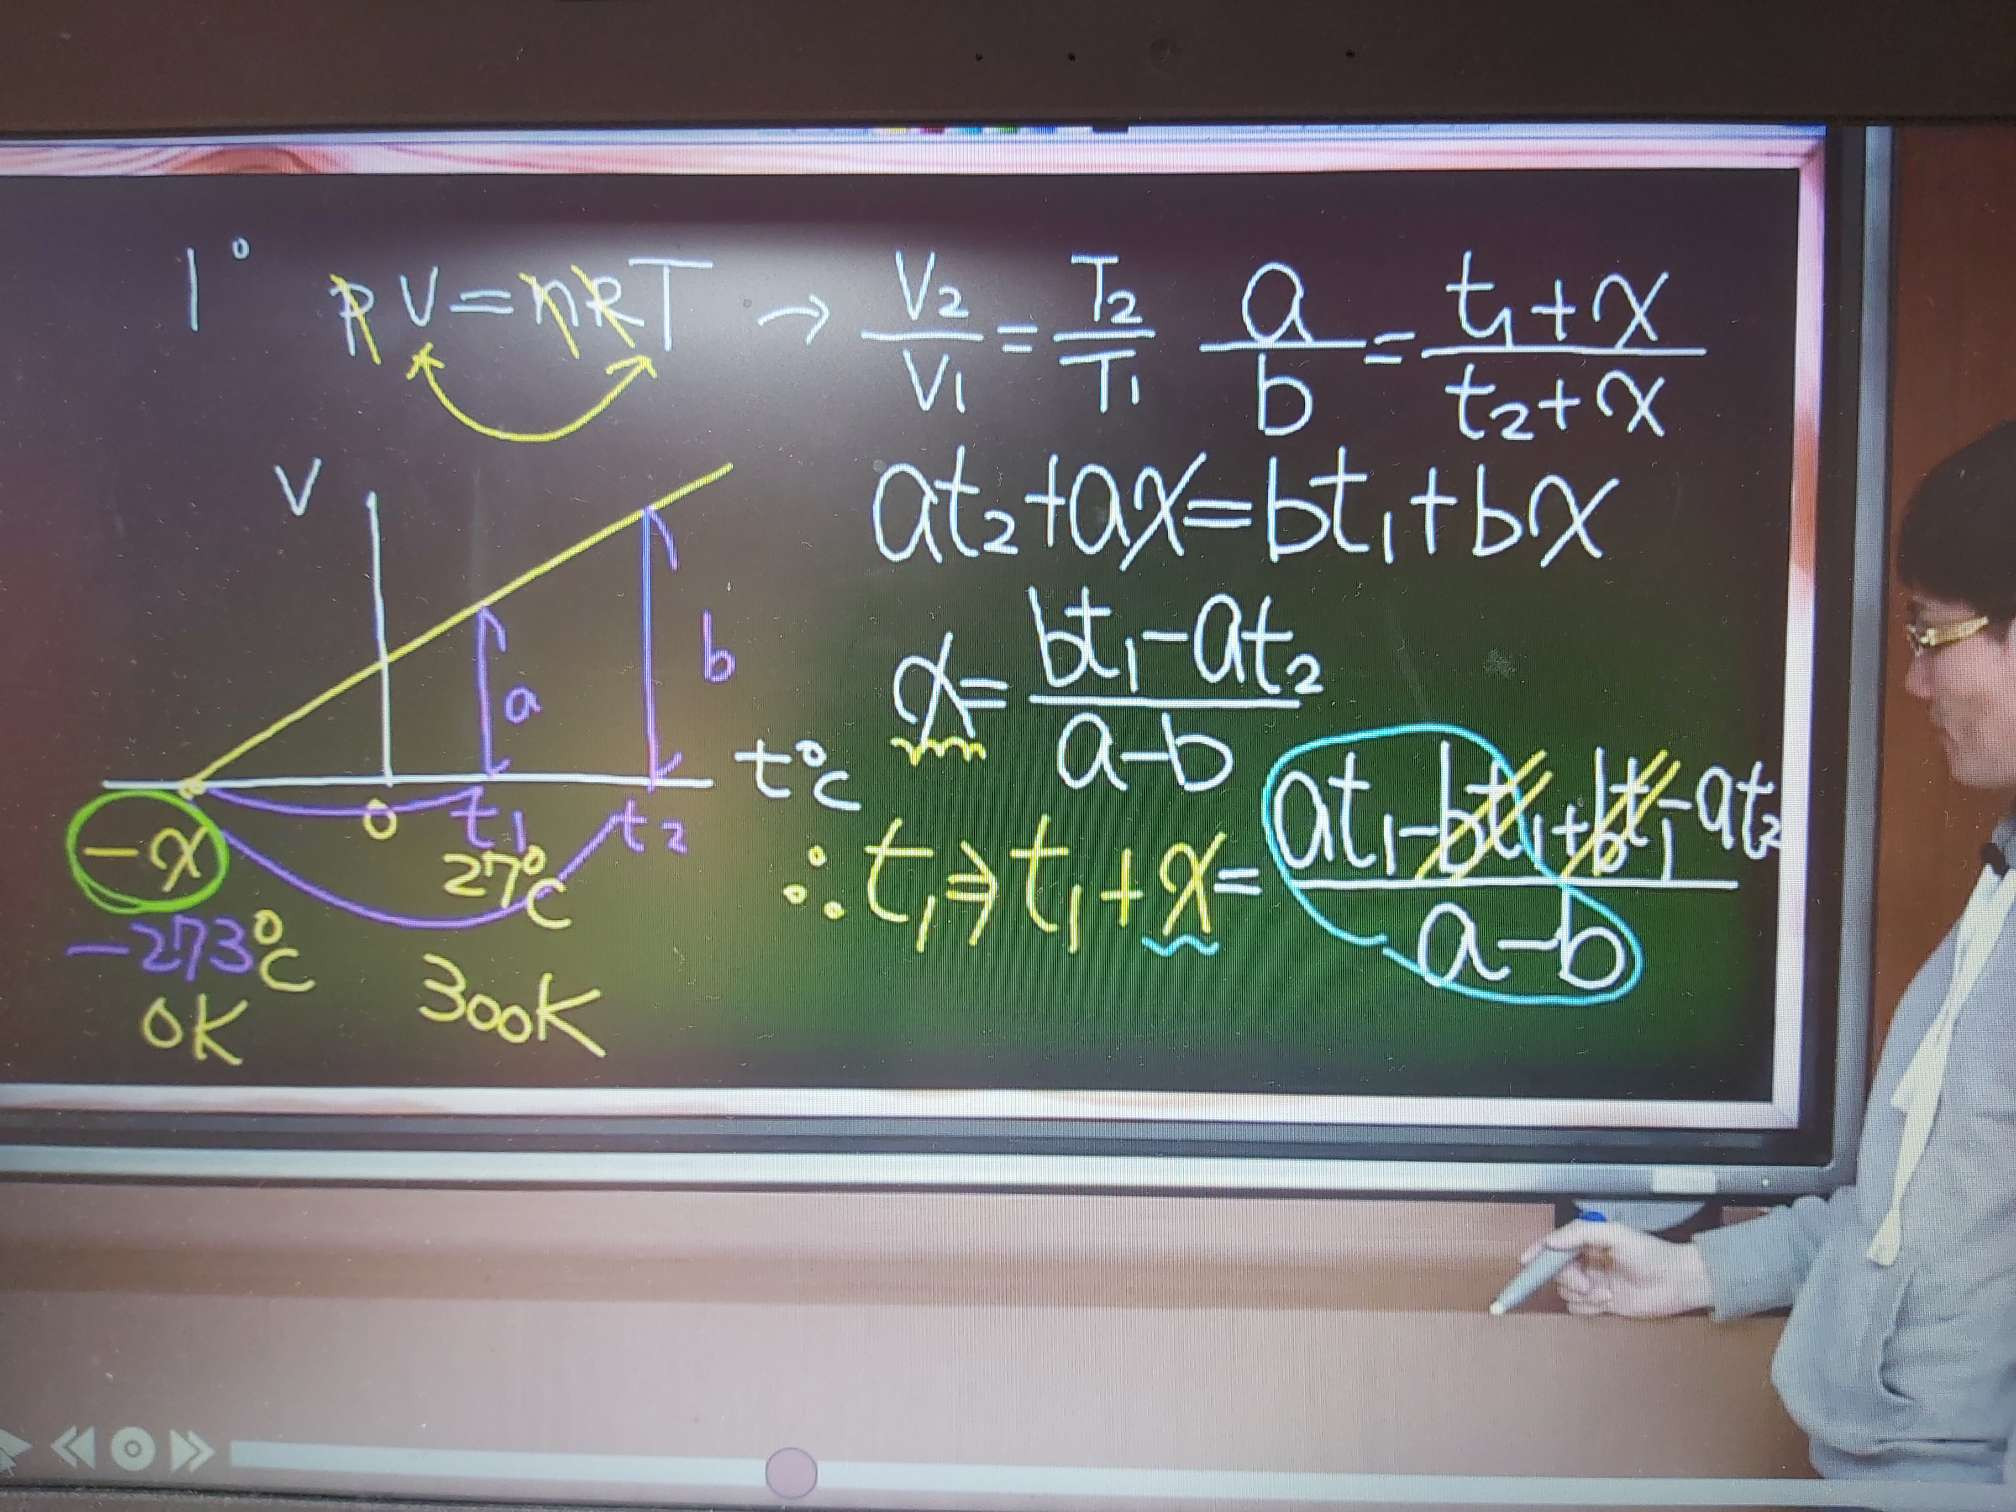 1° PV=nRT → V₂/V₁ = T₂/T₁ a/b = t₁+x/t₂+x
at₂+ax=bt₁+bx
x = bt₁-at₂/a-b
∴ t₁ ⇒ t₁+x = at₁-bt₁+bt₁-at₂/a-b
V
a
b
t°C
-x
0
t₁
t₂
27°C
-273°C
300K
0K